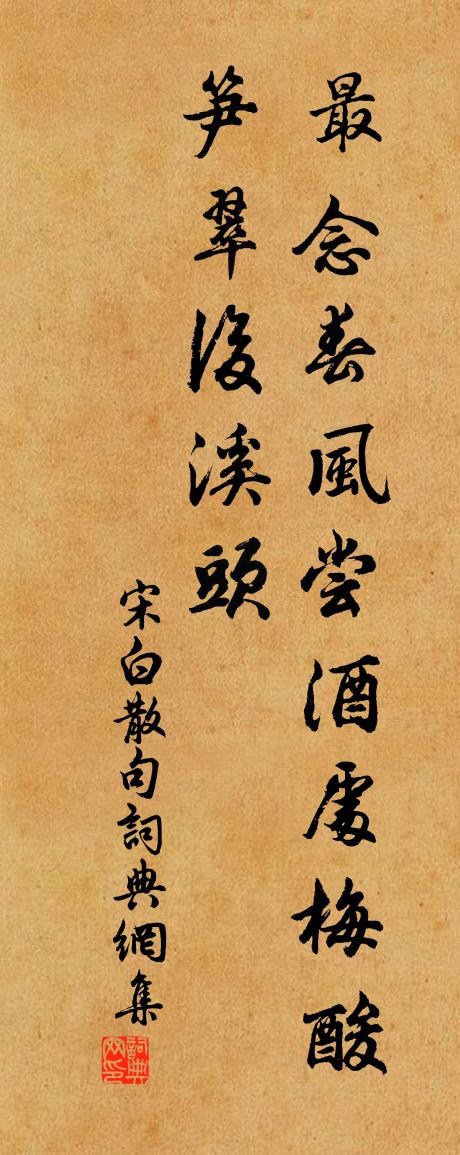 最念春風嘗酒處梅酸
笋翠後溪頭
宋白散句詞典網集
詞典網印